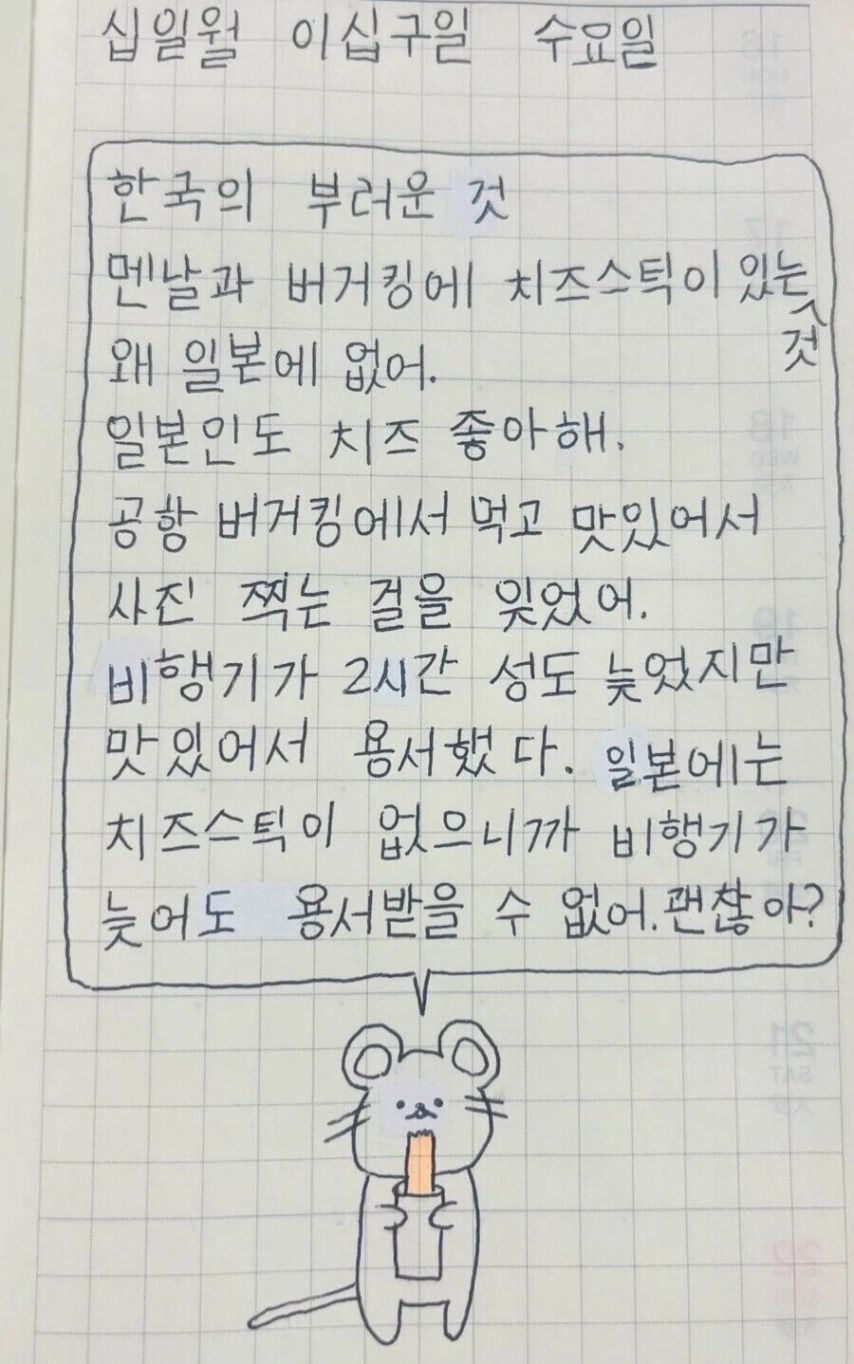 십일월 이십구일 수요일
한국의 부러운 것
멘날과 버거킹에 치즈스틱이 있는 것
왜 일본에 없어.
일본인도 치즈 좋아해.
공항 버거킹에서 먹고 맛있어서
사진 찍는 걸을 잊었어.
비행기가 2시간 성도 늦었지만
맛있어서 용서했다. 일본에는
치즈스틱이 없으니까 비행기가
늦어도 용서받을 수 없어. 괜찮아?
21
SAT
22